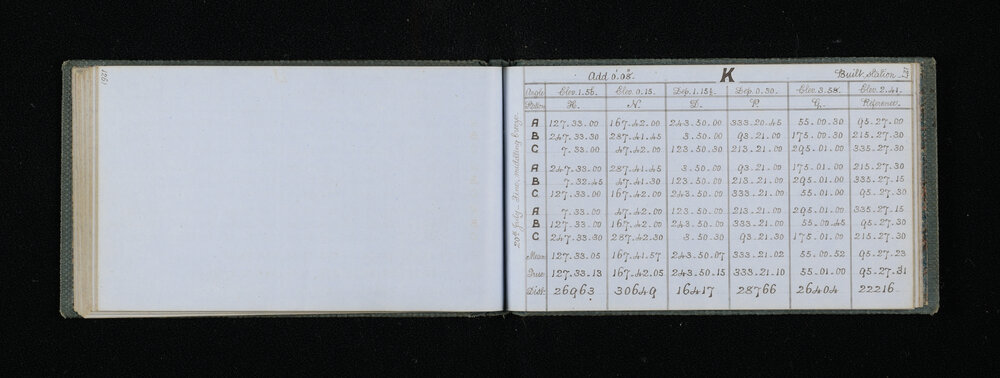 1921
Add 0'.08". K Built station
Angle Elev. 1.56. Elev. 0.15. Dep. 1.15½ Dep. 0.30. Elev. 3.58. Elev. 2.41.
Station H. N. D. P. G. Reference.
A 127.33.00 167.42.00 243.50.00 333.20.45 55.00.30 95.27.00
B 247.33.30 287.41.45 3.50.00 93.21.00 175.00.30 215.27.30
C 7.33.00 47.42.00 123.50.30 213.21.00 295.01.00 335.27.30
A 247.33.00 287.41.45 3.50.00 93.21.00 175.01.00 215.27.30
B 7.32.45 47.41.30 123.50.00 213.21.00 295.01.00 335.27.15
C 127.33.00 167.42.00 243.50.00 333.21.00 55.01.00 95.27.30
A 7.33.00 47.42.00 123.50.00 213.21.00 295.01.00 335.27.15
B 127.33.00 167.42.00 243.50.00 333.21.00 55.00.45 95.27.30
C 247.33.30 287.42.30 3.50.30 93.21.30 175.01.00 215.27.30
Mean 127.33.05 167.41.57 243.50.07 333.21.02 55.00.52 95.27.23
True 127.33.13 167.42.05 243.50.15 333.21.10 55.01.00 95.27.31
Dist. 26963 30649 16417 28766 26404 22216
20th July. Fine, middling